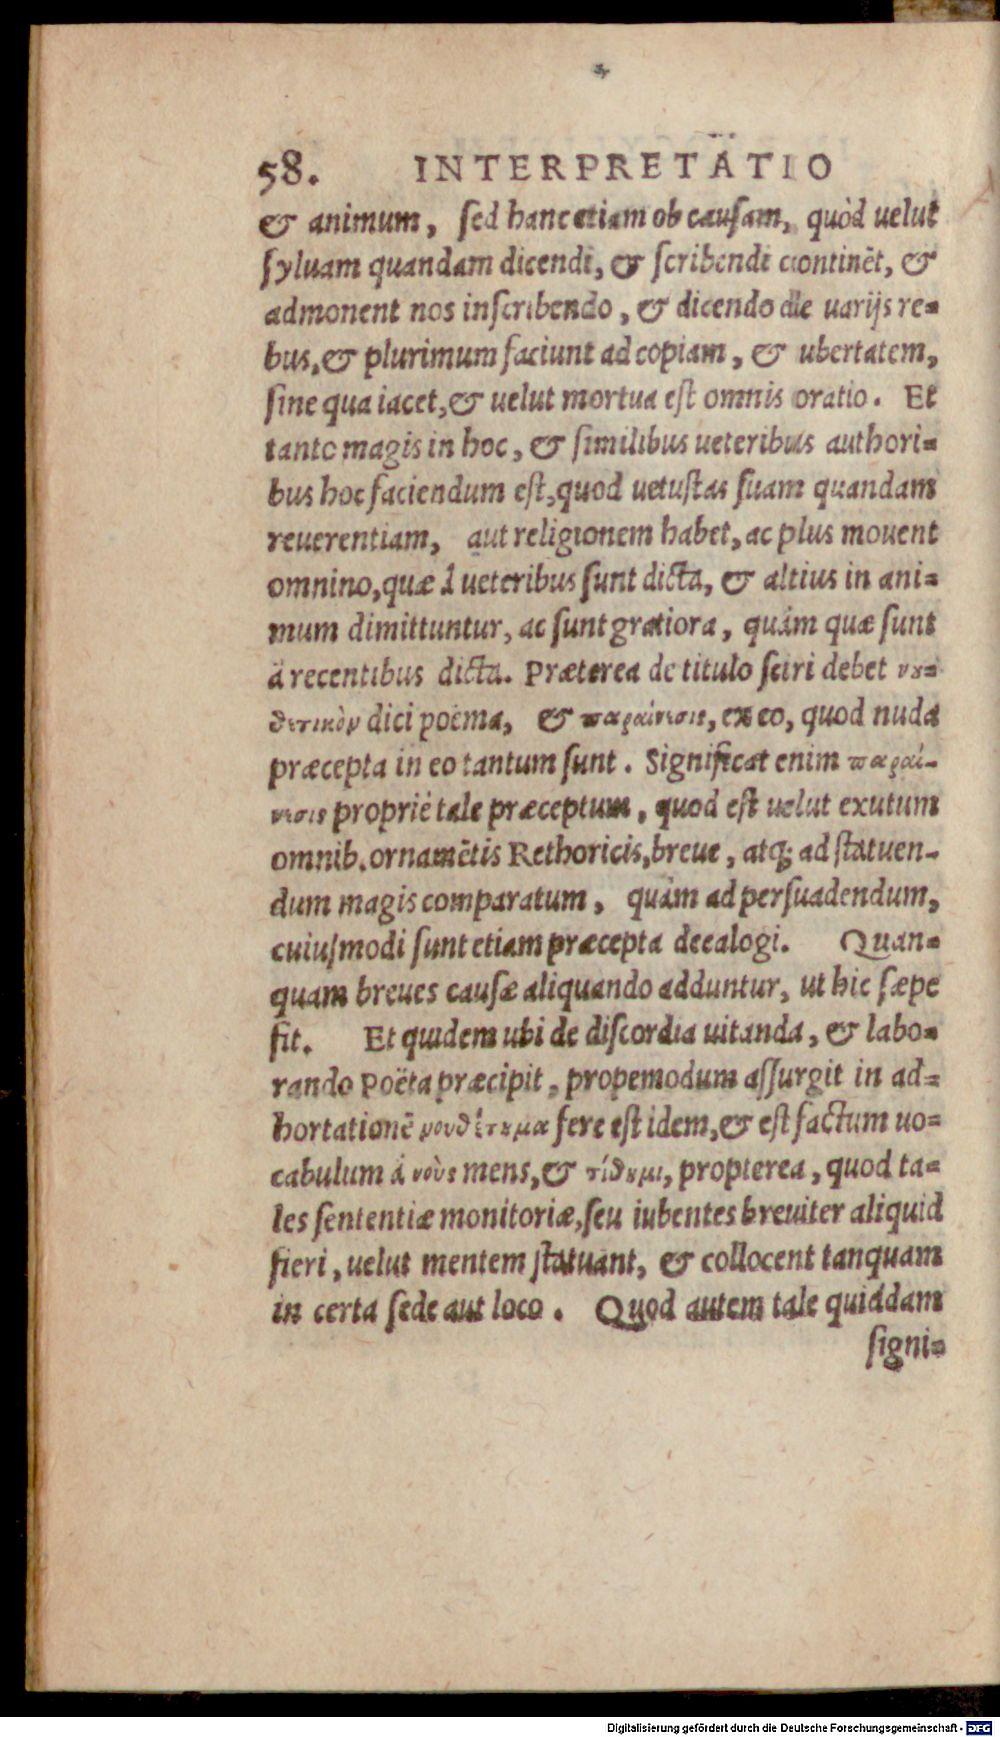 58. INTERPRETATIO
& animum, sed hanc etiam ob causam, quòd uelut
syluam quandam dicendi, & scribendi continēt, &
admonent nos inscribendo, & dicendo de uarijs re-
bus, & plurimum faciunt ad copiam, & ubertatem,
sine qua iacet, & uelut mortua est omnis oratio. Et
tanto magis in hoc, & similibus ueteribus authori-
bus hoc faciendum est, quod uetustas suam quandam
reuerentiam, aut religionem habet, ac plus mouent
omnino, quæ à ueteribus sunt dicta, & altius in ani-
mum dimittuntur, ac sunt gratiora, quàm quæ sunt
à recentibus dicta. Præterea de titulo sciri debet νȣ-
θετικὸν dici poema, & παραίνεσις, ex eo, quod nuda
præcepta in eo tantum sunt. Significat enim παραί-
νεσις propriè tale præceptum, quod est uelut exutum
omnib. ornamētis Rethoricis, breue, atq; ad statuen-
dum magis comparatum, quàm ad persuadendum,
cuiusmodi sunt etiam præcepta decalogi. Quan-
quam breues causæ aliquando adduntur, ut hic sæpe
fit. Et quidem ubi de discordia uitanda, & labo-
rando Poëta præcipit, propemodum assurgit in ad-
hortationē νουθέτημα fere est idem, & est factum uo-
cabulum à νοὺς mens, & τίθημι, propterea, quod ta-
les sententiæ monitoriæ, seu iubentes breuiter aliquid
fieri, uelut mentem statuant, & collocent tanquam
in certa sede aut loco. Quod autem tale quiddam
signi-
Digitalisierung gefördert durch die Deutsche Forschungsgemeinschaft - DFG